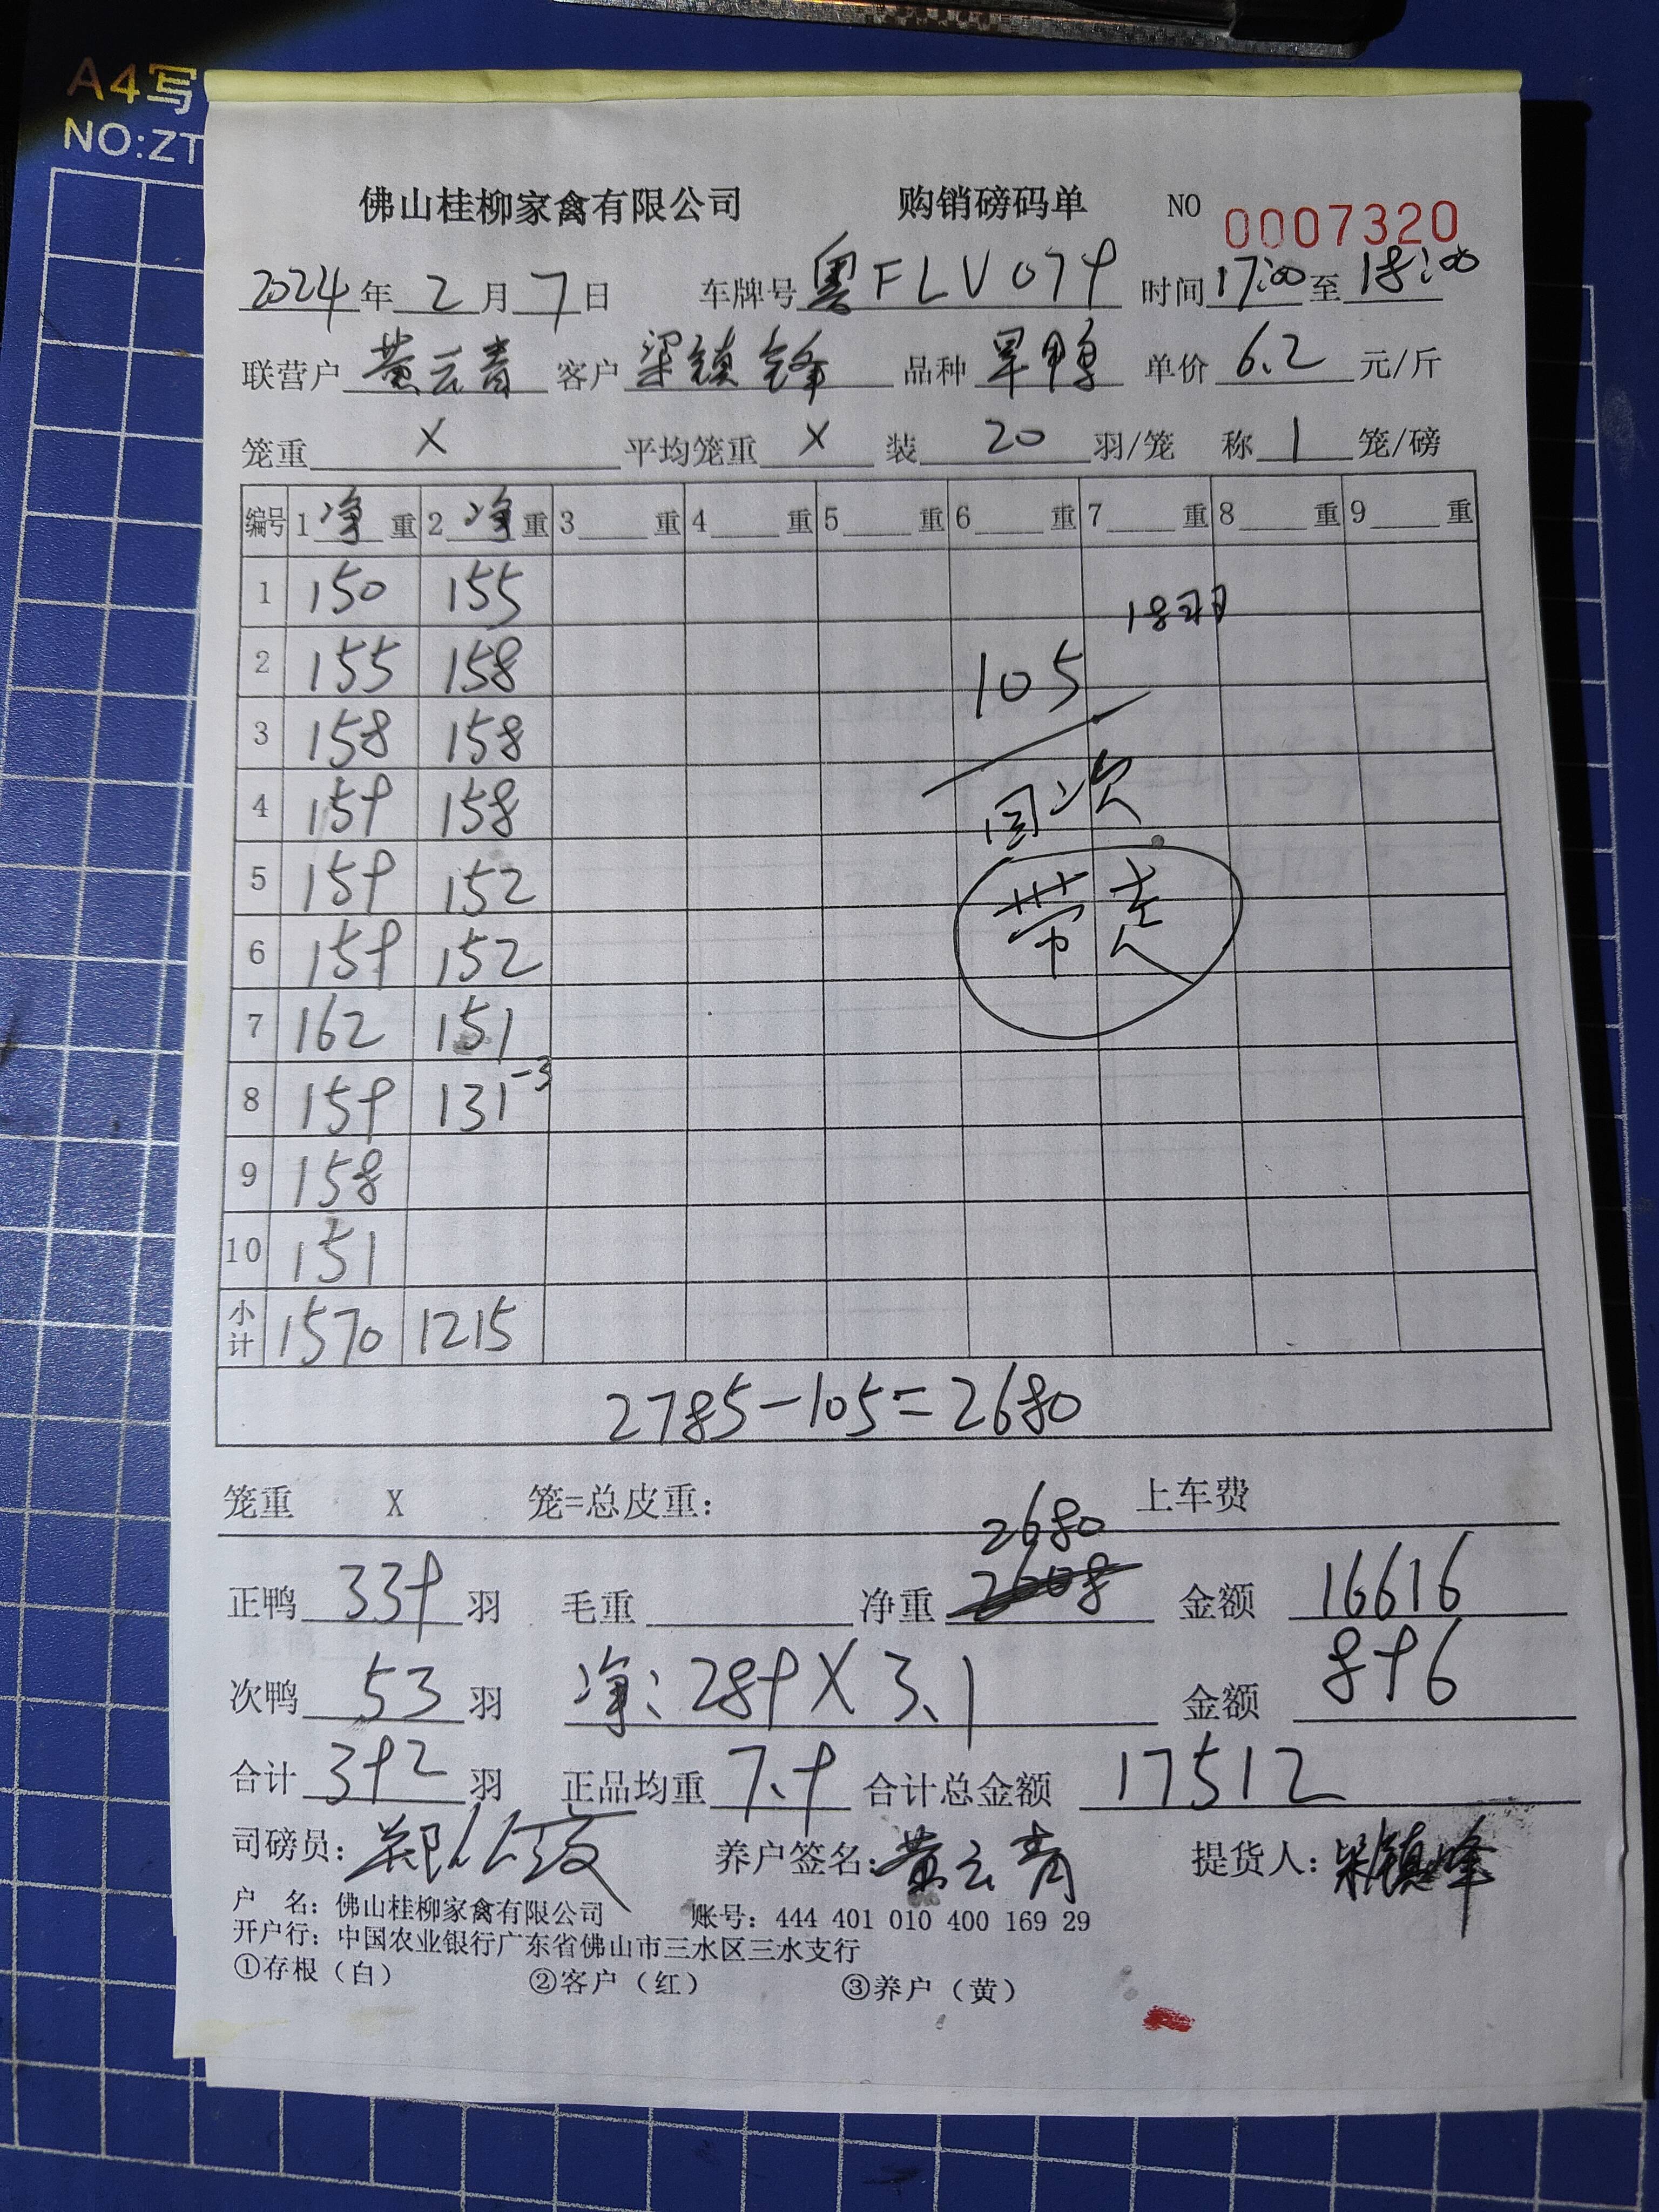 A4写
NO:ZT
佛山桂柳家禽有限公司 购销磅码单 NO 0007320
2024年2月7日 车牌号粤FLV079 时间17:00至18:00
联营户黄云青 客户梁镇锋 品种旱鸭 单价6.2元/斤
笼重X 平均笼重X 装20羽/笼 称1笼/磅
编号 1净重 2净重 3重 4重 5重 6重 7重 8重 9重
1 150 155
18羽
2 155 158
105
3 158 158
4 159 158
回次
5 159 152
带走
6 159 152
7 162 151
8 159 131-3
9 158
10 151
小计 1570 1215
2785-105=2680
笼重 X 笼=总皮重: 上车费
2680
正鸭339羽 毛重 净重 金额 16616
次鸭53羽 净:289X3.1 金额 896
合计392羽 正品均重7.9 合计总金额 17512
司磅员: 养户签名:黄云青 提货人:梁镇峰
户 名: 佛山桂柳家禽有限公司 账号: 444 401 010 400 169 29
开户行: 中国农业银行广东省佛山市三水区三水支行
①存根(白) ②客户(红) ③养户(黄)